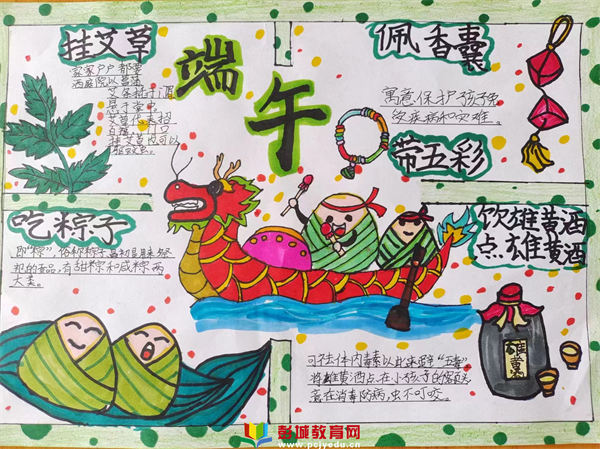 挂艾草
家家户户都要
洒庭院以菖蒲
艾条插于门眉
悬于堂中
艾草代表招
百福
挂艾草也可以
端午
佩香囊
寓意保护孩子免
受疾病和灾难。
带五彩
吃粽子
即“粽”,俗称粽子
有甜粽和咸粽两
大类。
饮雄黄酒
点雄黄酒
雄黄
可祛体内毒素以此来避“五毒”
将雄黄酒点在小孩子的
意在消毒防病,虫不叮咬。
彭城教育网
www.pcjyedu.cn